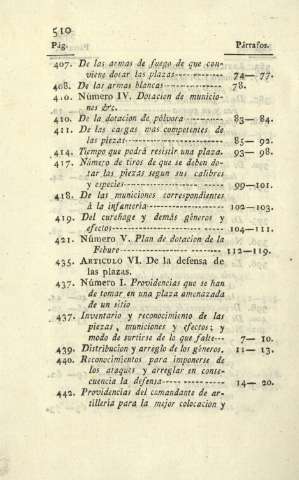 510
Pág. Párrafos.
407. De las armas de fuego de que con-
viene dotar las plazas----------- 74— 77.
408. De las armas blancas------------- 78.
410. Número IV. Dotacion de municio-
nes &c.
410. De la dotacion de pólvora -------- 83— 84.
411. De las cargas mas competentes de
las piezas----------------------- 85— 92.
414. Tiempo que podrá resistir una plaza. 93— 98.
417. Número de tiros de que se deben do-
tar las piezas segun sus calibres
y especies----------------------- 99—101.
418. De las municiones correspondientes
à la infantería------------------ 102—103.
419. Del cureñage y demás géneros y
efectos-------------------------- 104—111.
421. Número V. Plan de dotacion de la
Febure--------------------------- 112—119.
435. ARTICULO VI. De la defensa de
las plazas.
437. Número I. Providencias que se han
de tomar en una plaza amenazada
de un sitio
437. Inventario y reconocimiento de las
piezas, municiones y efectos; y
modo de surtirse de lo que falte--- 7— 10.
439. Distribucion y arreglo de los géneros. 11— 13.
440. Reconocimientos para imponerse de
los ataques y arreglar en conse-
cuencia la defensa--------------- 14— 20.
442. Providencias del comandante de ar-
tillería para la mejor colocacion y